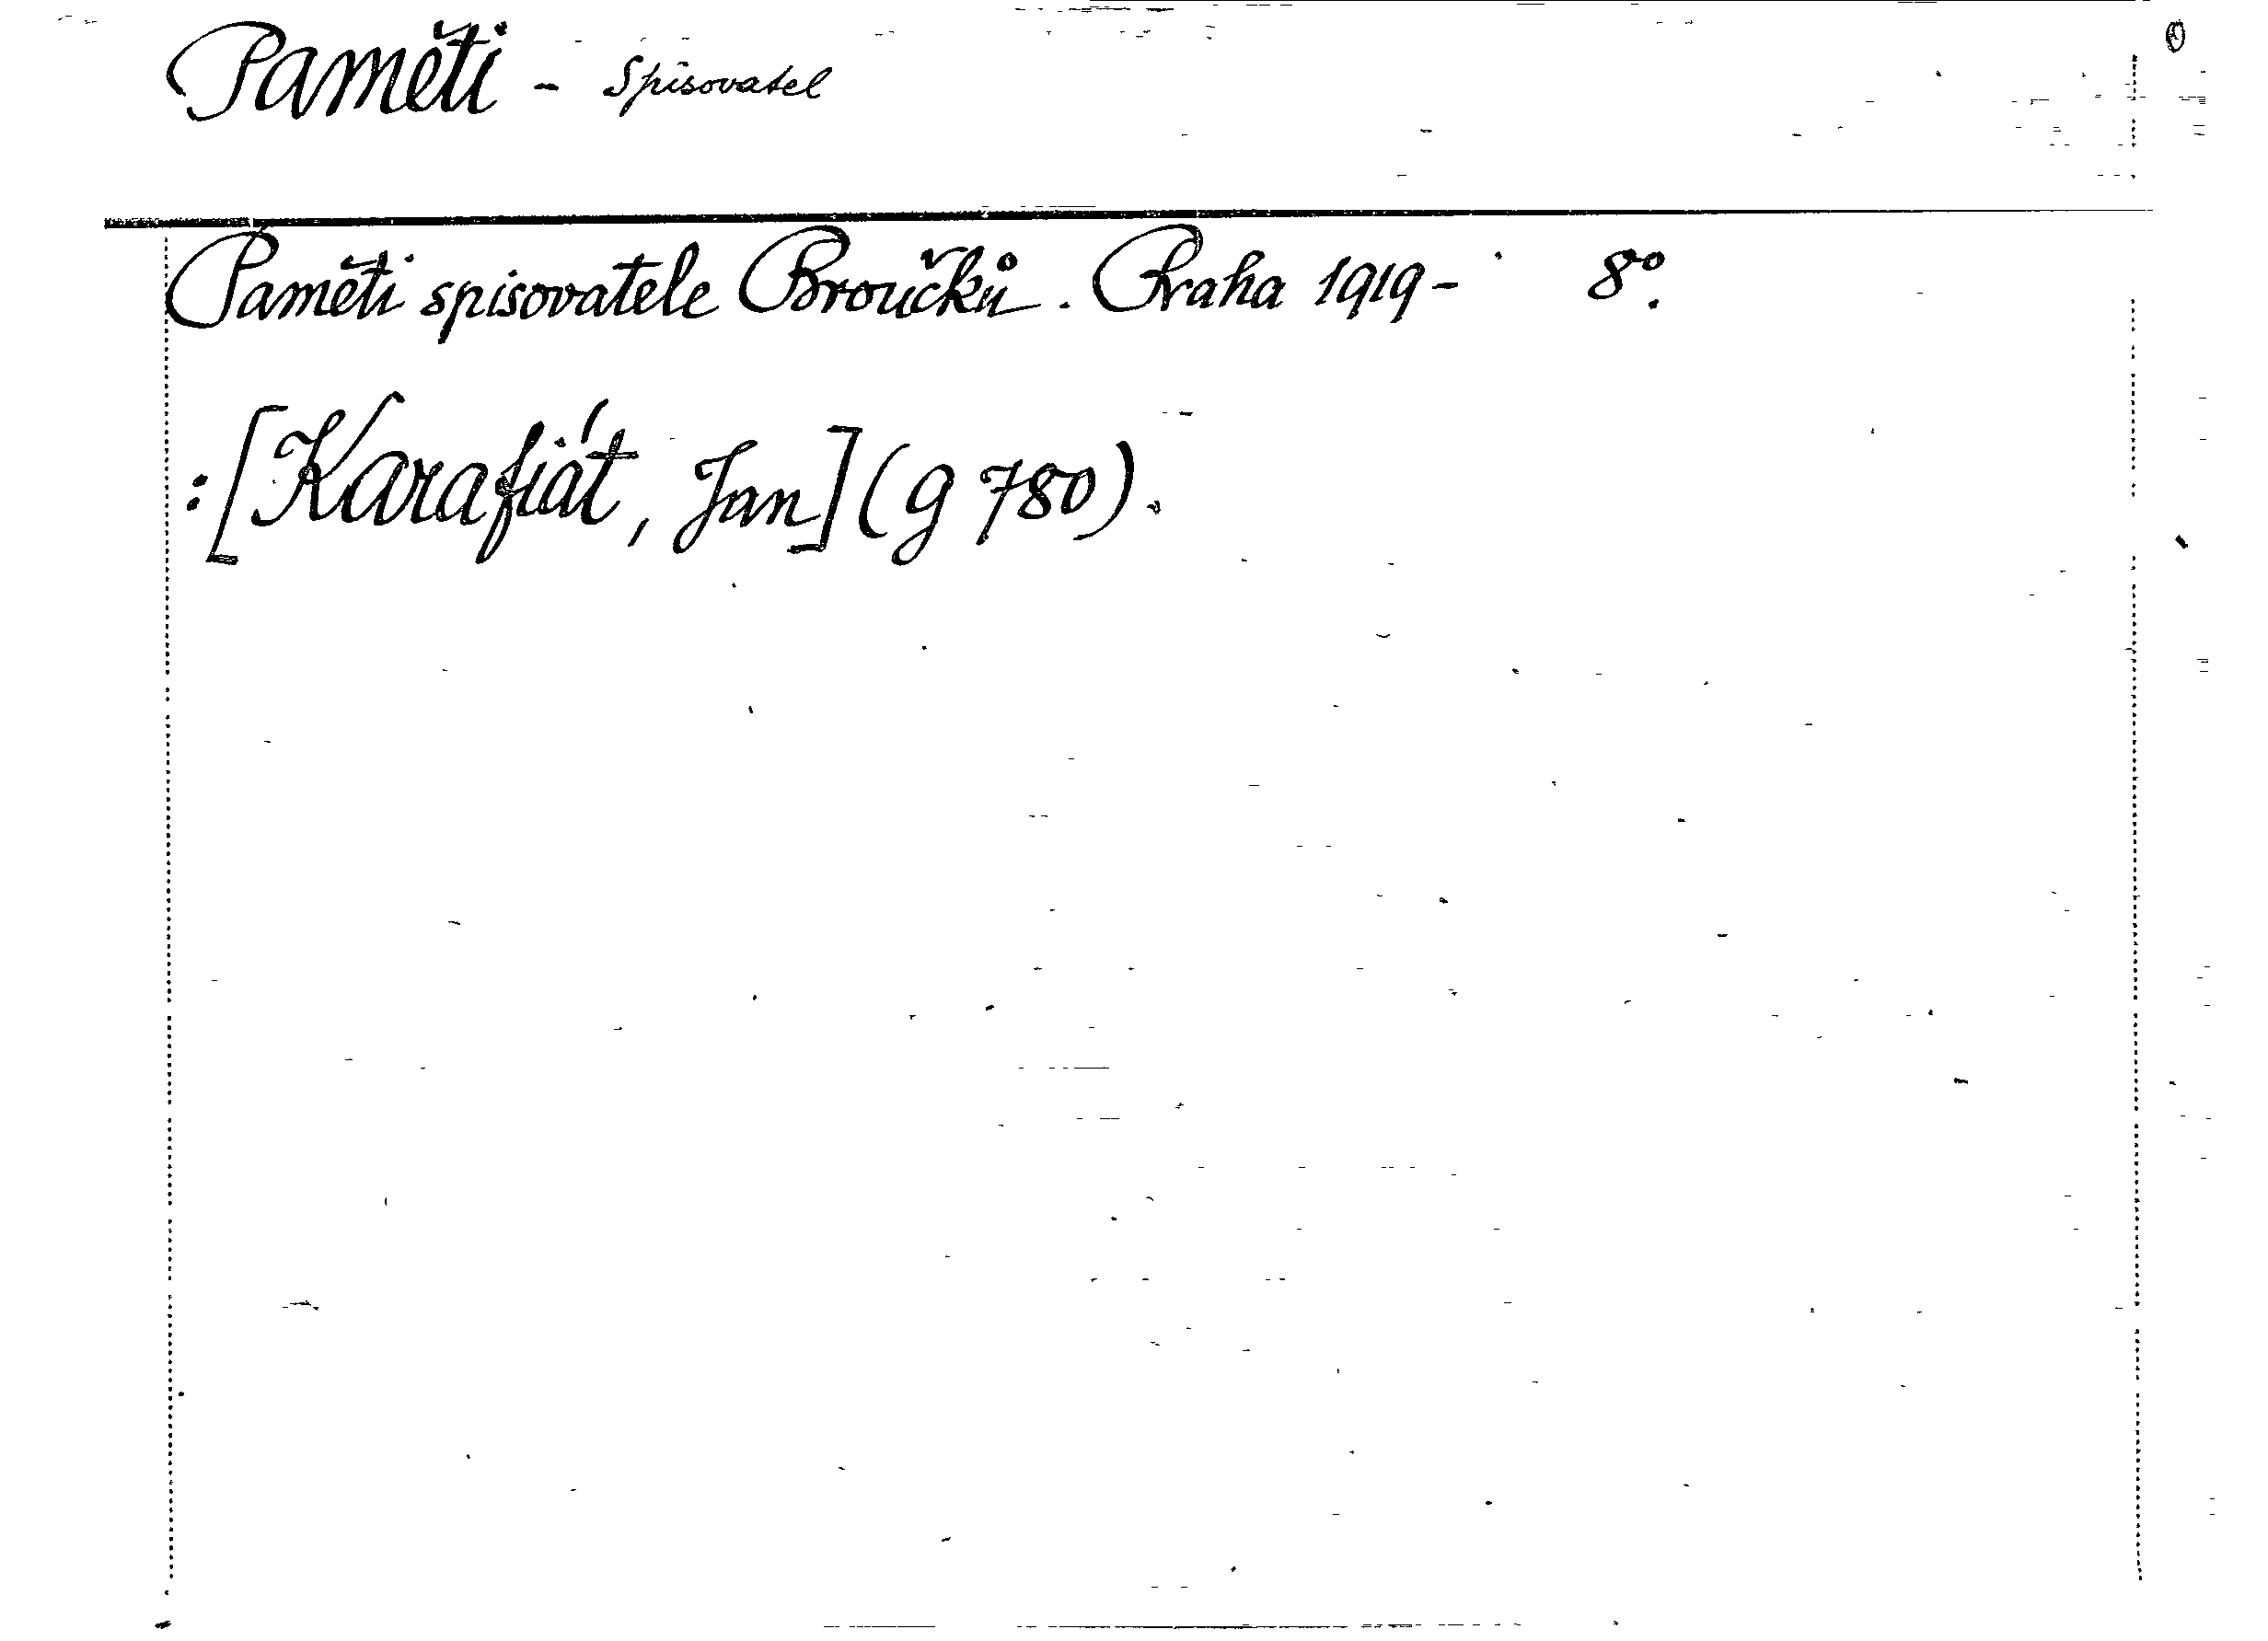 Paměti - Spisovatel
Paměti spisovatele Broučků. Praha 1919- 8°.
:[Karafiát, Jan](g 780).